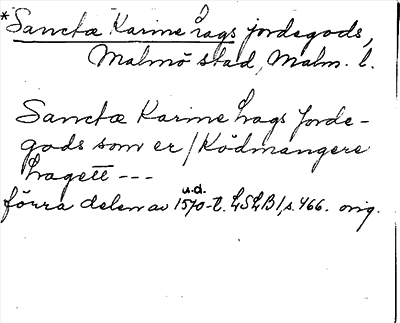 *Sanctæ Karine Lags jordegods,
Malmö stad, Malm. l.
Sanctæ Karine Lags Jorde-
gods som er / Ködmangere
Lagett ---
u.d.
förra delen av 1570-t. LSLB1, s. 466. orig.